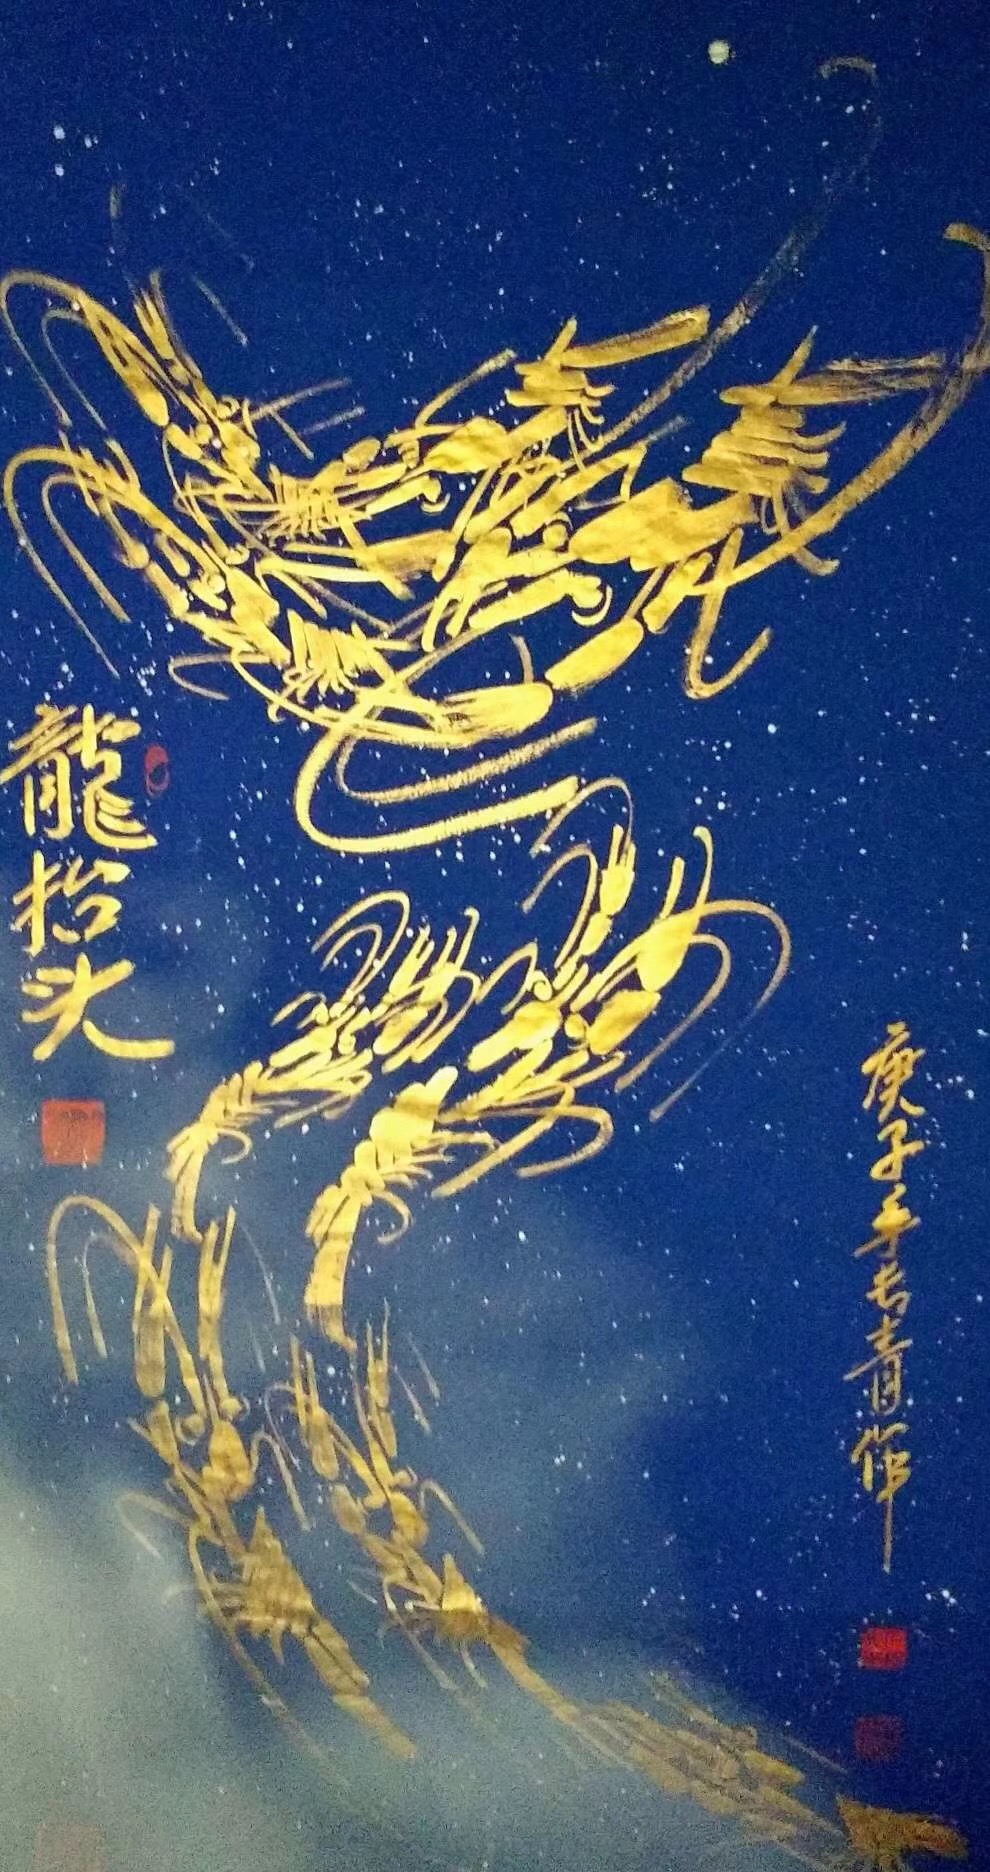 龍抬头
庚子年长青作